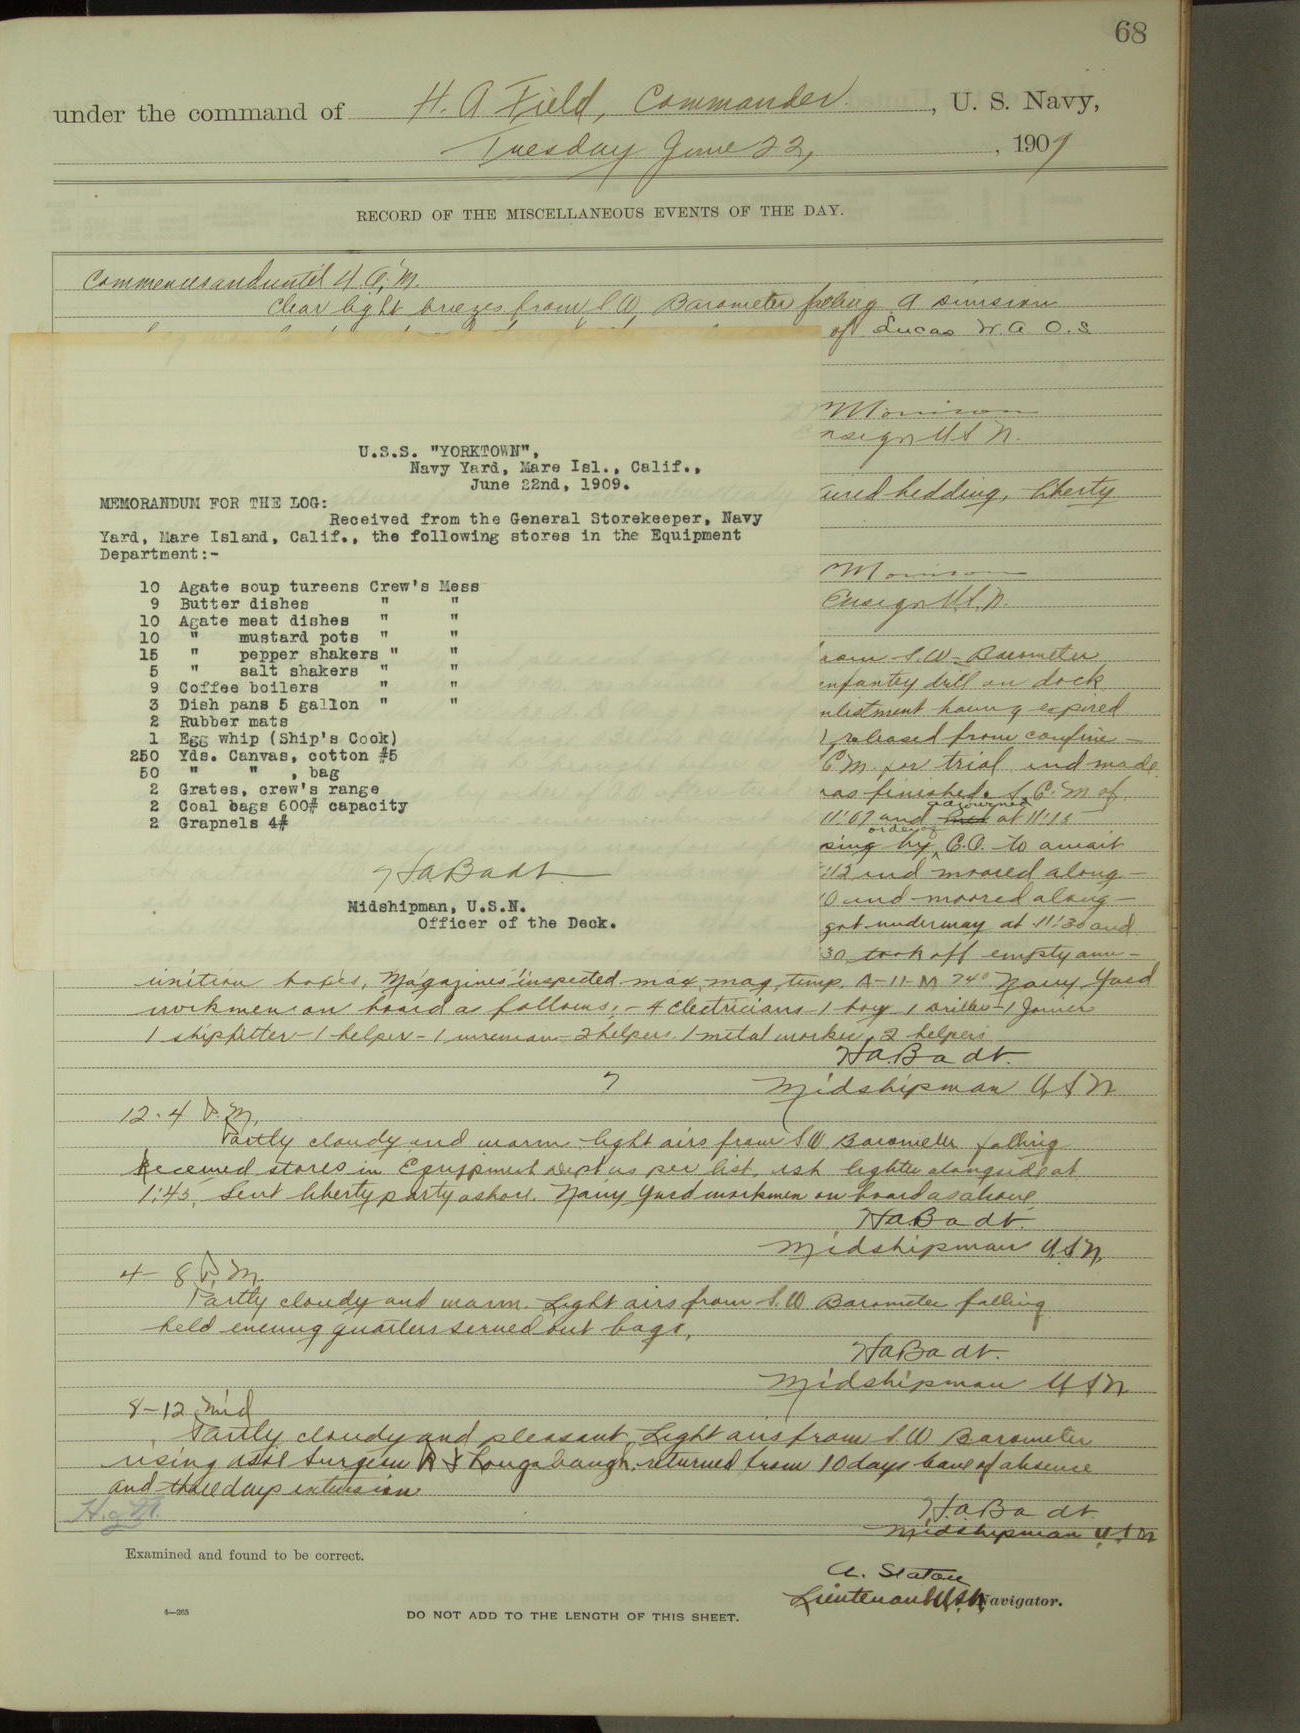 68
under the command of H. A. Field, Commander, U. S. Navy,
Tuesday June 22, 1909
RECORD OF THE MISCELLANEOUS EVENTS OF THE DAY.
Commences and until 4 A.M.
Clear light breezes from S W, Barometer falling A Division
of Lucas W. A O.S
U.S.S. "YORKTOWN",
Navy Yard, Mare Isl., Calif.,
June 22nd, 1909.
MEMORANDUM FOR THE LOG:
Received from the General Storekeeper, Navy
Yard, Mare Island, Calif., the following stores in the Equipment
Department:-
10 Agate soup tureens Crew's Mess
9 Butter dishes " "
10 Agate meat dishes " "
10 " mustard pots " "
15 " pepper shakers " "
5 " salt shakers " "
9 Coffee boilers " "
3 Dish pans 5 gallon " "
2 Rubber mats
1 Egg whip (Ship's Cook)
250 Yds. Canvas, cotton #5
50 " " , bag
2 Grates, crew's range
2 Coal bags 600# capacity
2 Grapnels 4#
HaBadt
Midshipman, U.S.N.
Officer of the Deck.
Morrison
nsign U S N.
aired bedding, liberty
Morrison
Ensign U.S.N.
rom S.W- Barometer
infantry drill on dock
nlistment having expired
released from confine-
C M for trial and made
as finished. S. C. M of
11:07 and adjourned at 11:15
by order of C.O. to await
:12 and moored along-
0 and moored along-
got underway at 11:30 and
30 took off empty amm-
unition boxes, Magazines inspected max mag temp. A-11-M 74° Navy Yard
workmen on board as follows;- 4 Electricians 1 boy 1 driller 1 Joiner
1 shipfitter - 1 helper - 1 wireman 2 helpers 1 metal worker, 2 helpers
HaBadt.
Midshipman U S N
12-4 P.M.
Partly cloudy and warm light airs from S W Barometer falling
Received stores in Equipment Dept as per list, ash lighter alongside at
1:45, Sent liberty party ashore. Navy Yard workmen on board as above
HaBadt.
Midshipman U.S.N.
4- 8 P.M.
Partly cloudy and warm. Light airs from S. W Barometer falling
held evening quarters served out bags,
HaBadt.
Midshipman U S N
8-12 Mid
Partly cloudy and pleasant Light airs from S. W Barometer
rising asst Surgeon Longabaugh, returned from 10 days leave of absence
and three days extension
HaBadt
Midshipman U.S.N
Examined and found to be correct.
A. Staton
Lieutenant U.S.N. Navigator.
4—265
DO NOT ADD TO THE LENGTH OF THIS SHEET.